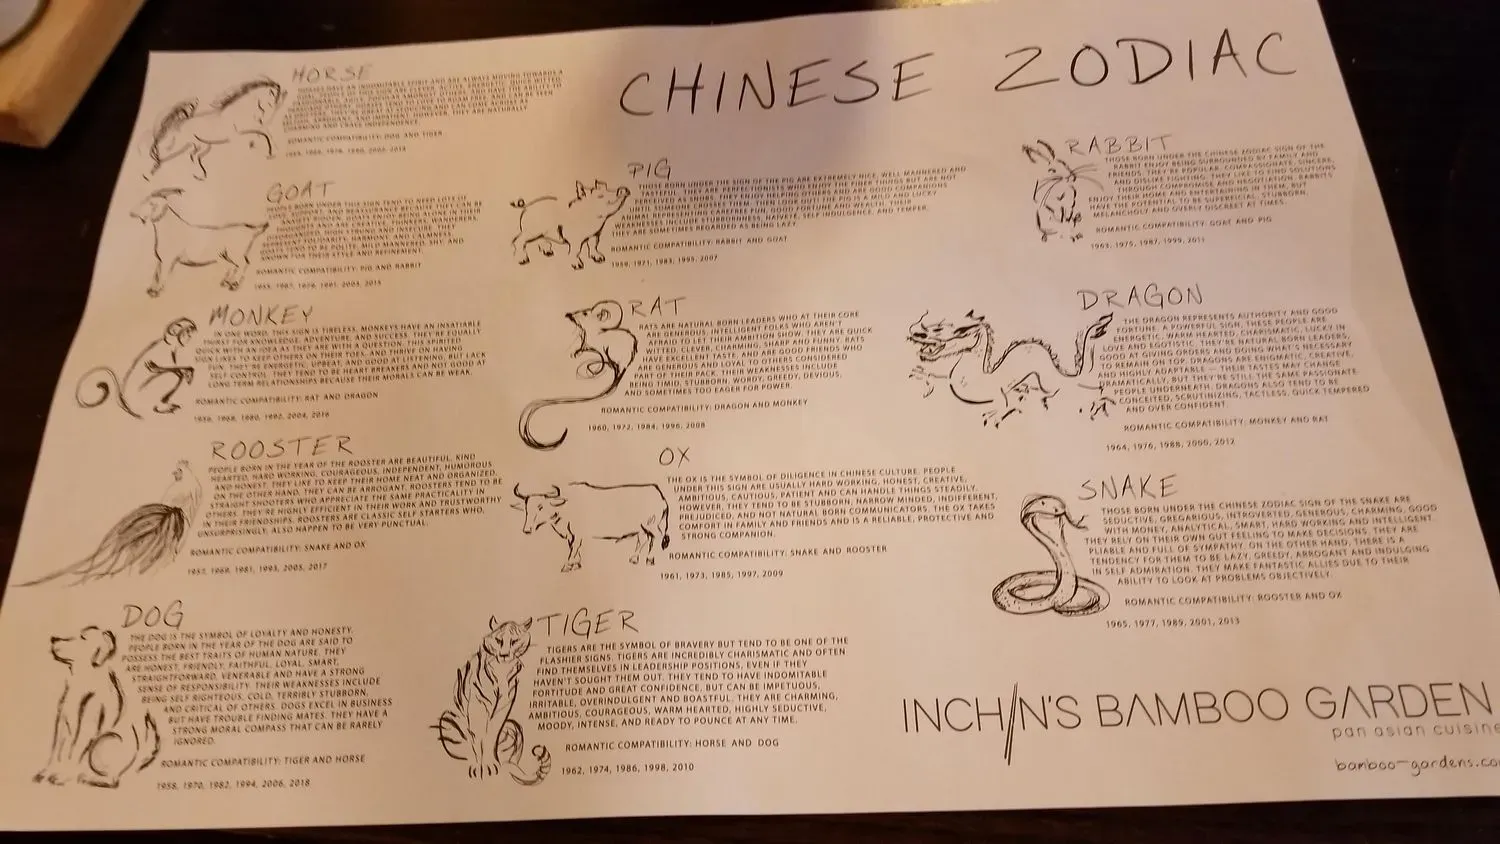 CHINESE ZODIAC
HORSE
HORSES HAVE AN INDOMITABLE SPIRIT AND ARE ALWAYS MOVING TOWARDS A
CHARMING AND CRAVE INDEPENDENCE.
ROMANTIC COMPATIBILITY: DOG AND TIGER
GOAT
PEOPLE BORN UNDER THIS SIGN TEND TO NEED LOTS OF
LOVE, SUPPORT, AND
REPRESENT SOLIDARITY, HARMONY, AND CALMNESS.
GOATS TEND TO BE POLITE, MILD MANNERED, SHY, AND
KNOWN FOR THEIR STYLE AND REFINEMENT.
ROMANTIC COMPATIBILITY: PIG AND RABBIT
MONKEY
IN ONE WORD, THIS SIGN IS TIRELESS. MONKEYS HAVE AN INSATIABLE
THIRST FOR KNOWLEDGE, ADVENTURE, AND SUCCESS. THEY'RE EQUALLY
QUICK WITH AN IDEA AS THEY ARE WITH A QUESTION. THIS SPIRITED
SIGN LIKES TO KEEP OTHERS ON THEIR TOES, AND THRIVE ON HAVING
FUN. THEY'RE ENERGETIC, UPBEAT, AND GOOD AT LISTENING, BUT LACK
SELF CONTROL. THEY TEND TO BE HEART BREAKERS AND NOT GOOD AT
LONG TERM RELATIONSHIPS BECAUSE THEIR MORALS CAN BE WEAK.
ROMANTIC COMPATIBILITY: RAT AND DRAGON
1956, 1968, 1980, 1992, 2004, 2016
ROOSTER
PEOPLE BORN IN THE YEAR OF THE ROOSTER ARE BEAUTIFUL, KIND
HEARTED, HARD WORKING, COURAGEOUS, INDEPENDENT, HUMOROUS
AND HONEST. THEY LIKE TO KEEP THEIR HOME NEAT AND ORGANIZED.
ON THE OTHER HAND, THEY CAN BE ARROGANT. ROOSTERS TEND TO BE
STRAIGHT SHOOTERS WHO APPRECIATE THE SAME PRACTICALITY IN
OTHERS. THEY'RE HIGHLY EFFICIENT IN THEIR WORK AND TRUSTWORTHY
IN THEIR FRIENDSHIPS. ROOSTERS ARE CLASSIC SELF STARTERS WHO,
UNSURPRISINGLY, ALSO HAPPEN TO BE VERY PUNCTUAL.
ROMANTIC COMPATIBILITY: SNAKE AND OX
1957, 1969, 1981, 1993, 2005, 2017
DOG
THE DOG IS THE SYMBOL OF LOYALTY AND HONESTY.
PEOPLE BORN IN THE YEAR OF THE DOG ARE SAID TO
POSSESS THE BEST TRAITS OF HUMAN NATURE. THEY
ARE HONEST, FRIENDLY, FAITHFUL, LOYAL, SMART,
STRAIGHTFORWARD, VENERABLE AND HAVE A STRONG
SENSE OF RESPONSIBILITY. THEIR WEAKNESSES INCLUDE
BEING SELF RIGHTEOUS, COLD, TERRIBLY STUBBORN,
AND CRITICAL OF OTHERS. DOGS EXCEL IN BUSINESS
BUT HAVE TROUBLE FINDING MATES. THEY HAVE A
STRONG MORAL COMPASS THAT CAN BE RARELY
IGNORED.
ROMANTIC COMPATIBILITY: TIGER AND HORSE
1958, 1970, 1982, 1994, 2006, 2018
PIG
THOSE BORN UNDER THE SIGN OF THE PIG ARE EXTREMELY NICE, WELL MANNERED AND
TASTEFUL. THEY ARE PERFECTIONISTS WHO ENJOY THE FINER THINGS BUT ARE NOT
PERCEIVED AS SNOBS. THEY ENJOY HELPING OTHERS AND ARE GOOD COMPANIONS
UNTIL SOMEONE CROSSES THEM, THEN LOOK OUT! THE PIG IS A MILD AND LUCKY
ANIMAL REPRESENTING CAREFREE FUN, GOOD FORTUNE AND WEALTH. THEIR
WEAKNESSES INCLUDE STUBBORNNESS, NAIVETE, SELF INDULGENCE, AND TEMPER.
THEY ARE SOMETIMES REGARDED AS BEING LAZY.
ROMANTIC COMPATIBILITY: RABBIT AND GOAT
1959, 1971, 1983, 1995, 2007
RAT
RATS ARE NATURAL BORN LEADERS WHO AT THEIR CORE
ARE GENEROUS, INTELLIGENT FOLKS WHO AREN'T
AFRAID TO LET THEIR AMBITION SHOW. THEY ARE QUICK
WITTED, CLEVER, CHARMING, SHARP AND FUNNY. RATS
HAVE EXCELLENT TASTE, AND ARE GOOD FRIENDS WHO
ARE GENEROUS AND LOYAL TO OTHERS CONSIDERED
PART OF THEIR PACK. THEIR WEAKNESSES INCLUDE
BEING TIMID, STUBBORN, WORDY, GREEDY, DEVIOUS,
AND SOMETIMES TOO EAGER FOR POWER.
ROMANTIC COMPATIBILITY: DRAGON AND MONKEY
1960, 1972, 1984, 1996, 2008
OX
THE OX IS THE SYMBOL OF DILIGENCE IN CHINESE CULTURE. PEOPLE
UNDER THIS SIGN ARE USUALLY HARD WORKING, HONEST, CREATIVE,
AMBITIOUS, CAUTIOUS, PATIENT AND CAN HANDLE THINGS STEADILY.
HOWEVER, THEY TEND TO BE STUBBORN, NARROW MINDED, INDIFFERENT,
PREJUDICED, AND NOT NATURAL BORN COMMUNICATORS. THE OX TAKES
COMFORT IN FAMILY AND FRIENDS AND IS A RELIABLE, PROTECTIVE AND
STRONG COMPANION.
ROMANTIC COMPATIBILITY: SNAKE AND ROOSTER
1961, 1973, 1985, 1997, 2009
TIGER
TIGERS ARE THE SYMBOL OF BRAVERY BUT TEND TO BE ONE OF THE
FLASHIER SIGNS. TIGERS ARE INCREDIBLY CHARISMATIC AND OFTEN
FIND THEMSELVES IN LEADERSHIP POSITIONS, EVEN IF THEY
HAVEN'T SOUGHT THEM OUT. THEY TEND TO HAVE INDOMITABLE
FORTITUDE AND GREAT CONFIDENCE, BUT CAN BE IMPETUOUS,
IRRITABLE, OVERINDULGENT AND BOASTFUL. THEY ARE CHARMING,
AMBITIOUS, COURAGEOUS, WARM HEARTED, HIGHLY SEDUCTIVE,
MOODY, INTENSE, AND READY TO POUNCE AT ANY TIME.
ROMANTIC COMPATIBILITY: HORSE AND DOG
1962, 1974, 1986, 1998, 2010
RABBIT
THOSE BORN UNDER THE CHINESE ZODIAC SIGN OF THE
RABBIT ENJOY BEING SURROUNDED BY FAMILY AND
FRIENDS. THEY'RE POPULAR, COMPASSIONATE, SINCERE,
AND DISLIKE FIGHTING. THEY LIKE TO FIND SOLUTIONS
THROUGH COMPROMISE AND NEGOTIATION. RABBITS
ENJOY THEIR HOME AND ENTERTAINING IN THEM, BUT
HAVE THE POTENTIAL TO BE SUPERFICIAL, STUBBORN,
MELANCHOLY AND OVERLY DISCREET AT TIMES.
ROMANTIC COMPATIBILITY: GOAT AND PIG
1963, 1975, 1987, 1999, 2011
DRAGON
THE DRAGON REPRESENTS AUTHORITY AND GOOD
FORTUNE. A POWERFUL SIGN, THESE PEOPLE ARE
ENERGETIC, WARM HEARTED, CHARISMATIC, LUCKY IN
LOVE AND EGOTISTIC. THEY'RE NATURAL BORN LEADERS,
GOOD AT GIVING ORDERS AND DOING WHAT'S NECESSARY
TO REMAIN ON TOP. DRAGONS ARE ENIGMATIC, CREATIVE,
AND HIGHLY ADAPTABLE — THEIR TASTES MAY CHANGE
DRAMATICALLY, BUT THEY'RE STILL THE SAME PASSIONATE
PEOPLE UNDERNEATH. DRAGONS ALSO TEND TO BE
CONCEITED, SCRUTINIZING, TACTLESS, QUICK TEMPERED
AND OVER CONFIDENT.
ROMANTIC COMPATIBILITY: MONKEY AND RAT
1964, 1976, 1988, 2000, 2012
SNAKE
THOSE BORN UNDER THE CHINESE ZODIAC SIGN OF THE SNAKE ARE
SEDUCTIVE, GREGARIOUS, INTROVERTED, GENEROUS, CHARMING, GOOD
WITH MONEY, ANALYTICAL, SMART, HARD WORKING AND INTELLIGENT.
THEY RELY ON THEIR OWN GUT FEELING TO MAKE DECISIONS. THEY ARE
PLIABLE AND FULL OF SYMPATHY. ON THE OTHER HAND, THERE IS A
TENDENCY FOR THEM TO BE LAZY, GREEDY, ARROGANT AND INDULGING
IN SELF ADMIRATION. THEY MAKE FANTASTIC ALLIES DUE TO THEIR
ABILITY TO LOOK AT PROBLEMS OBJECTIVELY.
ROMANTIC COMPATIBILITY: ROOSTER AND OX
1965, 1977, 1989, 2001, 2013
INCHIN'S BAMBOO GARDEN
pan asian cuisine
bamboo-gardens.co